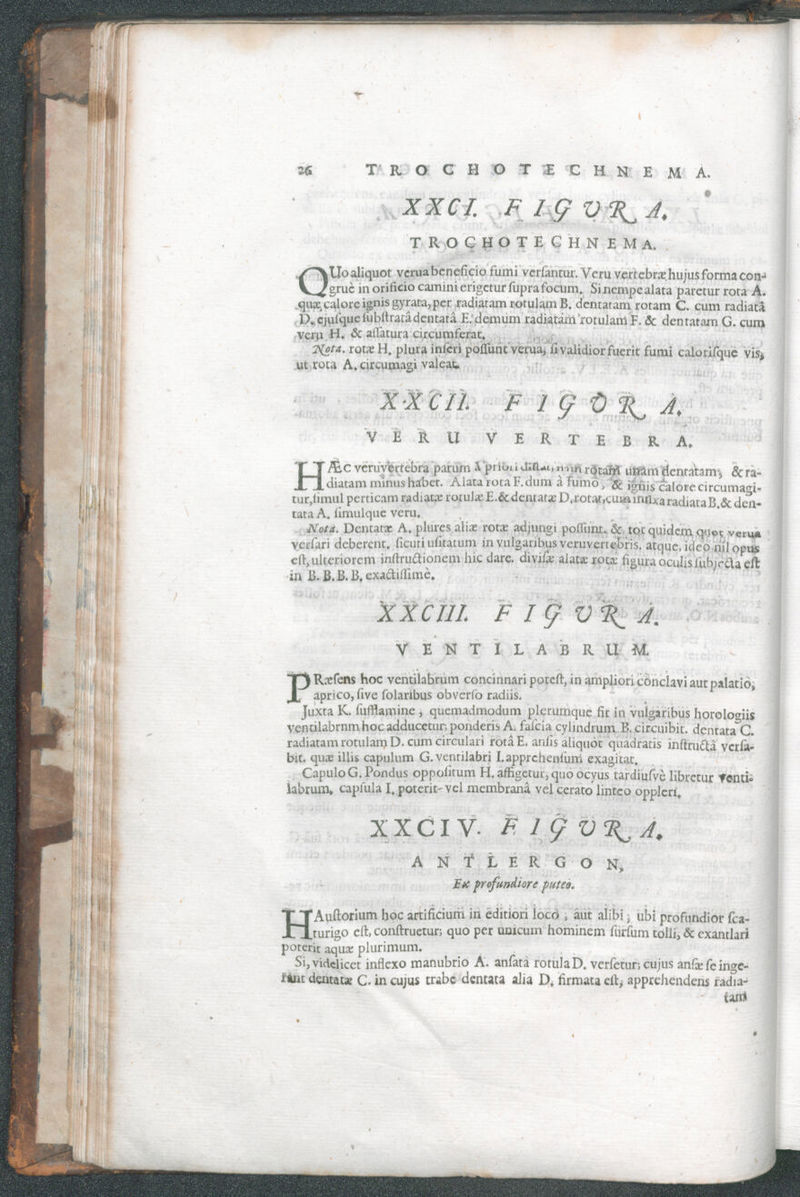 26 TROCHOTECHNEMA.
XXCI. FIGVRA.
TROCHOTECHNEMA.
QUo aliquot verua beneficio fumi verſantur. Veru vertebræ hujus forma con-
gruè in orificio camini erigetur ſupra focum. Si nempe alata paretur rota A.
quæ calore ignis gyrata, per radiatam rotulam B. dentatam rotam C. cum radiatâ
D. ejuſque ſubſtratâ dentatâ E. demum radiatam rotulam F. & dentatam G. cum
veru H. & aſſatura circumferat.
Nota. rotæ H. plura inſeri poſſunt verua, ſi validior fuerit fumi caloriſque vis,
ut rota A. circumagi valeat.
XXCII. FIGVRA.
VERUVERTEBRA.
HÆc veruvertebra parum à priori diſtat, niſi rotam unam dentatam, & ra-
diatam minus habet. Alata rota F. dum à fumo, & ignis calore circumagi-
tur, ſimul perticam radiatæ rotulæ E. & dentatæ D. rotat, cum infixa radiata B. & den-
tata A. ſimulque veru.
Nota. Dentatæ A. plures aliæ rotæ adjungi poſſunt. & tot quidem quot verua
verſari deberent, ſicuti uſitatum in vulgaribus veruvertebris. atque ideo nil opus
eſt, ulteriorem inſtructionem hic dare. diviſæ alatæ rotæ figura oculis ſubjecta eſt
in B. B. B. B. exactiſſimè.
XXCIII. FIGVRA.
VENTILABRUM
PRæſens hoc ventilabrum concinnari poteſt, in ampliori conclavi aut palatio,
aprico, ſive ſolaribus obverſo radiis.
Juxta K. ſufflamine, quemadmodum plerumque fit in vulgaribus horologiis
ventilabrnm hoc adducetur; ponderis A. faſcia cylindrum B. circuibit. dentata C.
radiatam rotulam D. cum circulari rotâ E. anſis aliquot quadratis inſtructâ verſa-
bit. quæ illis capulum G. ventilabri I. apprehenſum exagitat.
Capulo G. Pondus oppoſitum H. affigetur, quo ocyus tardiuſvè libretur venti-
labrum, capſula I. poterit vel membranâ vel cerato linteo oppleri.
XXCIV. FIGVRA.
ANTLERGON,
Ex profundiore puteo.
HAuſtorium hoc artificium in editiori loco, aut alibi, ubi profundior ſca-
turigo eſt, conſtruetur; quo per unicum hominem ſurſum tolli, & exantlari
poterit aquæ plurimum.
Si, videlicet inflexo manubrio A. anſata rotula D. verſetur; cujus anſæ ſe inge-
rant dentatæ C. in cujus trabe dentata alia D. firmata eſt, apprehendens radia-
tam